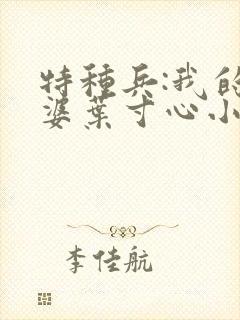 特種兵:我的
婆葉寸心小
李佳航